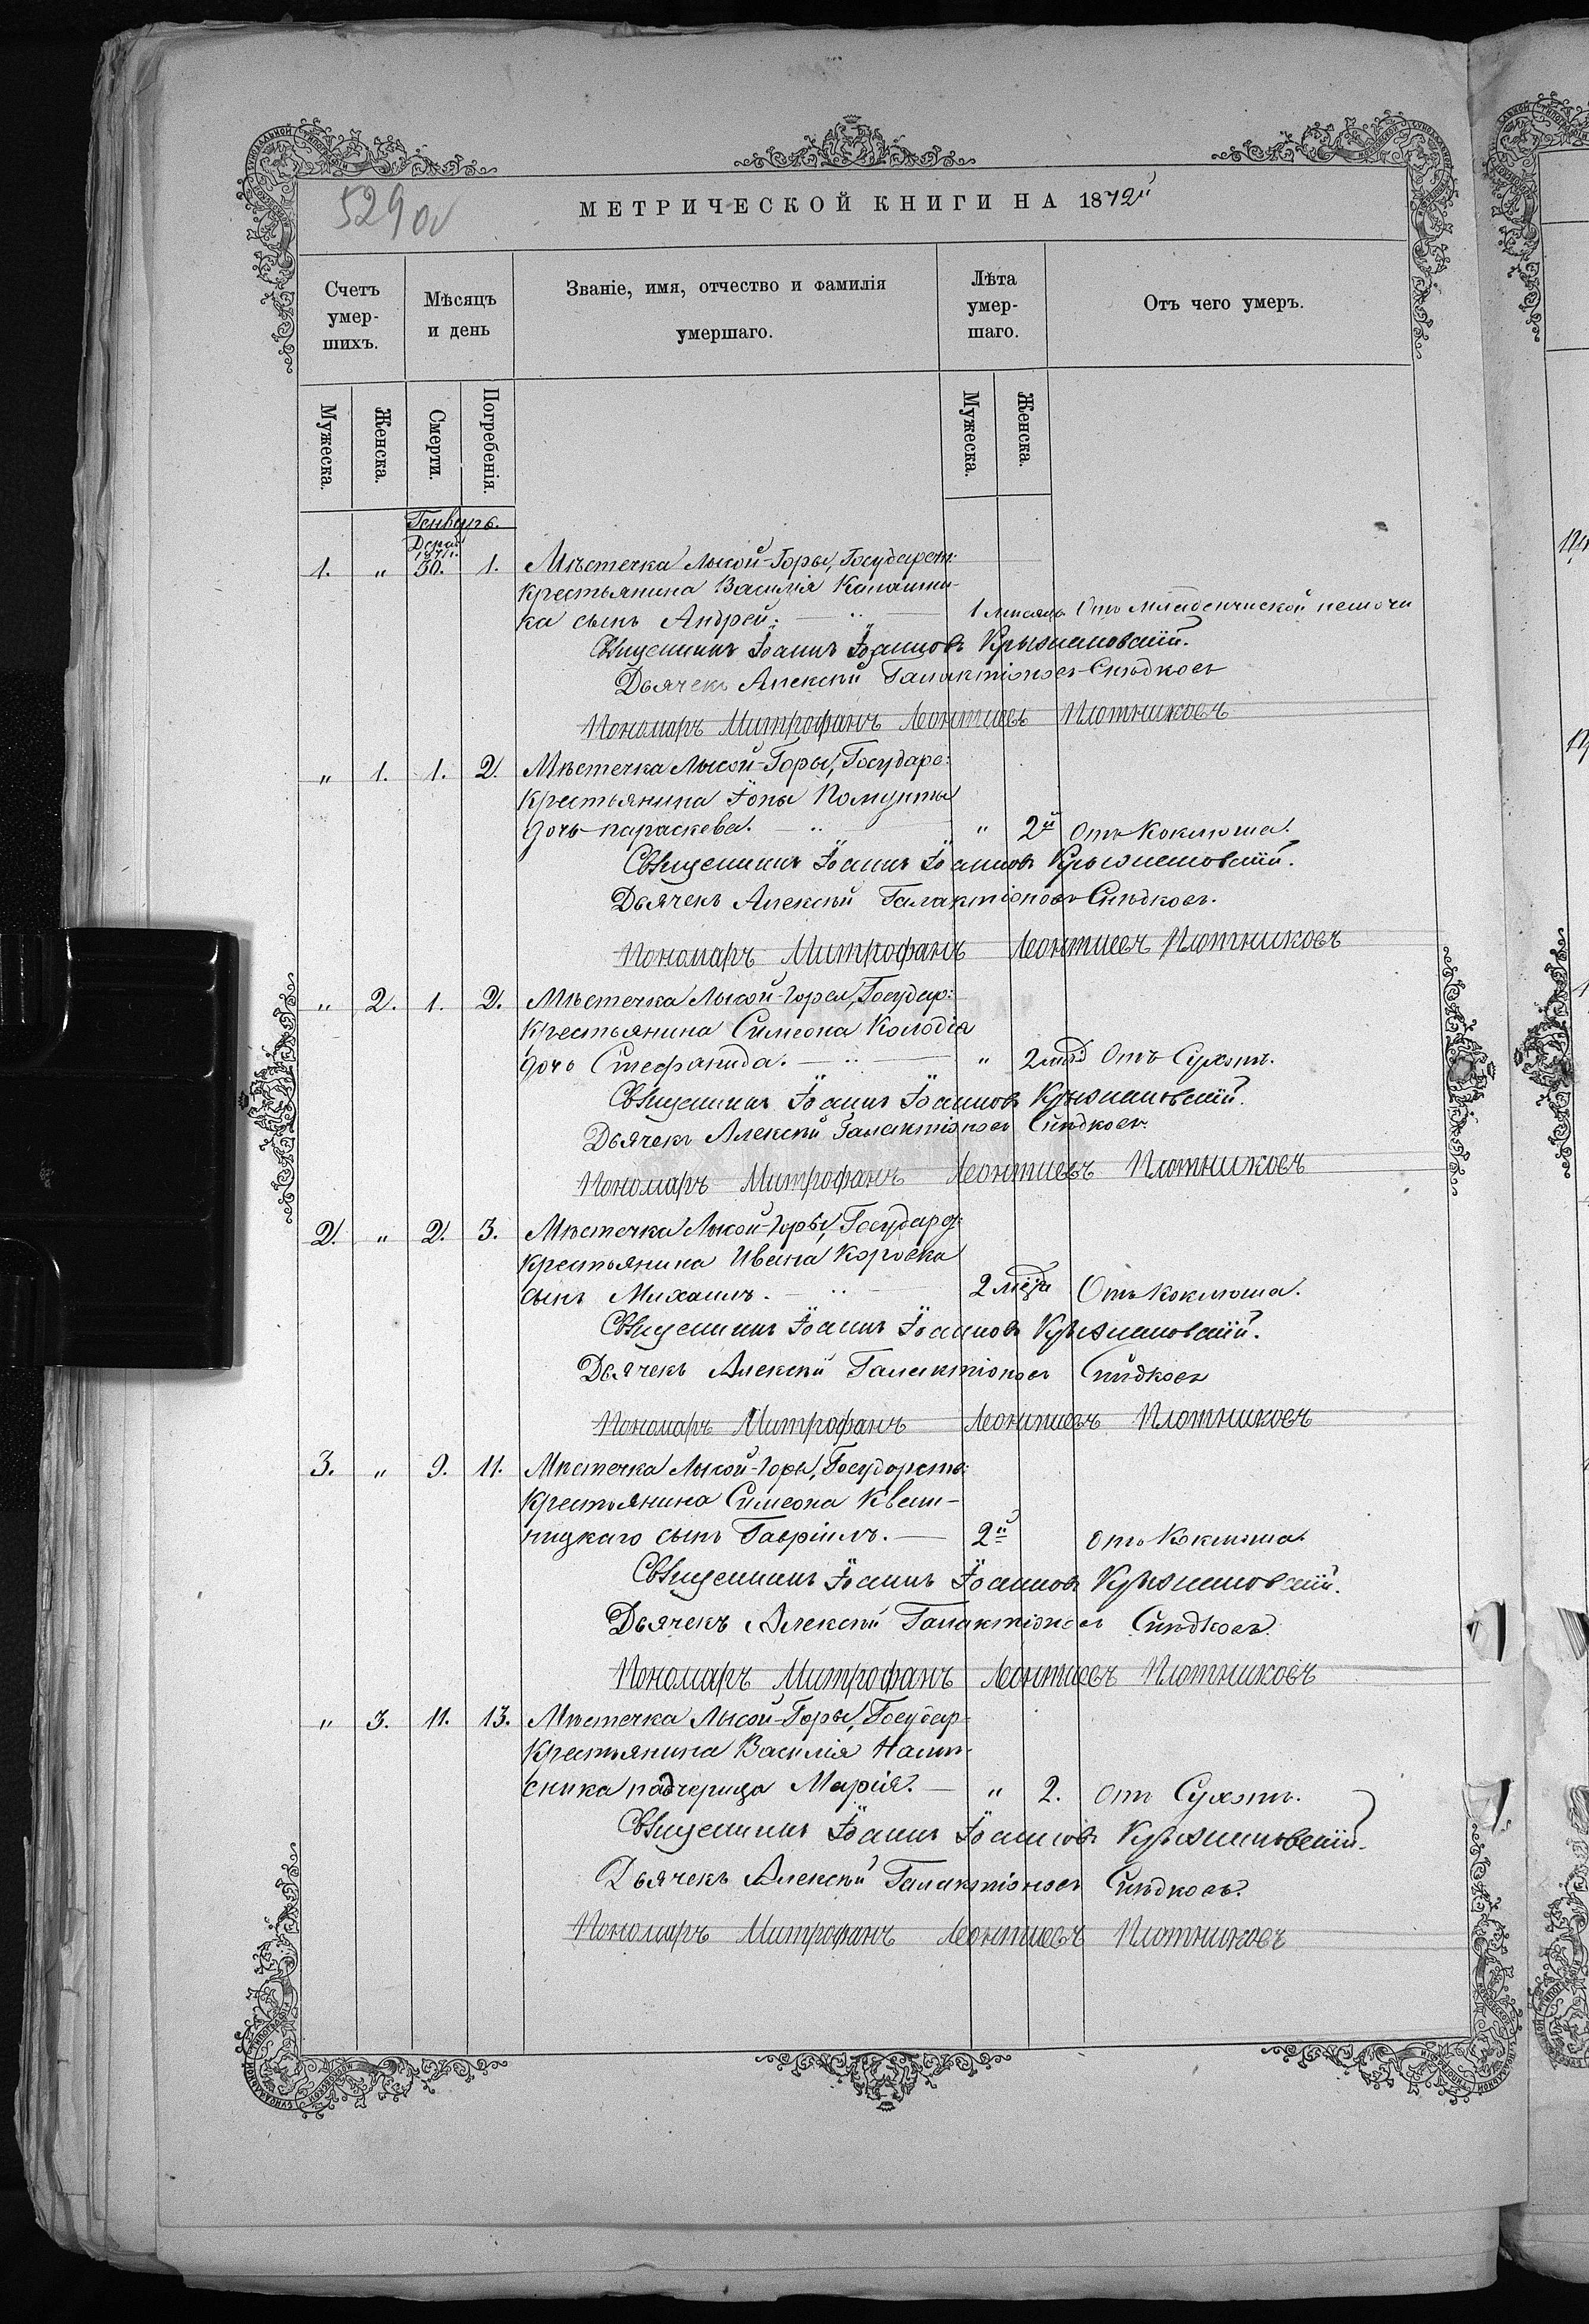 529 об
МЕТРИЧЕСКОЙ КНИГИ НА 1872й
Счетъ умер- шихъ.
Мѣсяцъ и день
Званіе, имя, отчество и фамилія умершаго.
Лѣта умер- шаго.
Отъ чего умеръ.
Мужеска.
Женска.
Смерти.
Погребенія.
Мужеска.
Женска.
Генварь.
Декаб
1871г.
1. " 30. 1. Мѣстечка Лысой-Горы, Государст:
крестьянина Василія
ка сынъ Андрей. 1 мѣсяцъ Отъ младенческой немочи
Священникъ Іоаннъ Іоанновъ Крыжановскій.
Дьячекъ Алексѣй Галактіоновъ Снѣдковъ
Пономарь Митрофанъ Леонтіевъ Плотниковъ
" 1. 1. 2. Мѣстечка Лысой-Горы, Государс:
крестьянина Іоны
дочь параскева. " 2й Отъ Коклюша.
Священникъ Іоаннъ Іоанновъ Крыжановскій.
Дьячекъ Алексѣй Галактіоновъ Снѣдковъ.
Пономарь Митрофанъ Леонтіевъ Плотниковъ
" 2. 1. 2. Мѣстечка Лысой-Горы, Государ:
крестьянина Симеона Колодія
дочь Стефанида. " Отъ Сухотъ.
Священникъ Іоаннъ Іоанновъ Крыжановскій.
Дьячекъ Алексѣй Галактіоновъ Снѣдковъ.
Пономарь Митрофанъ Леонтіевъ Плотниковъ
2. " 2. 3. Мѣстечка Лысой-Горы, Государс:
крестьянина Ивана
сынъ Михаилъ. Отъ Коклюша.
Священникъ Іоаннъ Іоанновъ Крыжановскій.
Дьячекъ Алексѣй Галактіоновъ Снѣдковъ
Пономарь Митрофанъ Леонтіевъ Плотниковъ
3. " 9. 11. Мѣстечка Лысой-Горы, Государств:
крестьянина Симеона Кваш-
ницкаго сынъ Гавріилъ. 2й отъ Коклюша.
Священникъ Іоаннъ Іоанновъ Крыжановскій.
Дьячекъ Алексѣй Галактіоновъ Снѣдковъ.
Пономарь Митрофанъ Леонтіевъ Плотниковъ
" 3. 11. 13. Мѣстечка Лысой-Горы, Государ-
крестьянина Василія
падчерица Марія. " 2. отъ Сухотъ.
Священникъ Іоаннъ Іоанновъ Крыжановскій.
Дьячекъ Алексѣй Галактіоновъ Снѣдковъ.
Пономарь Митрофанъ Леонтіевъ Плотниковъ